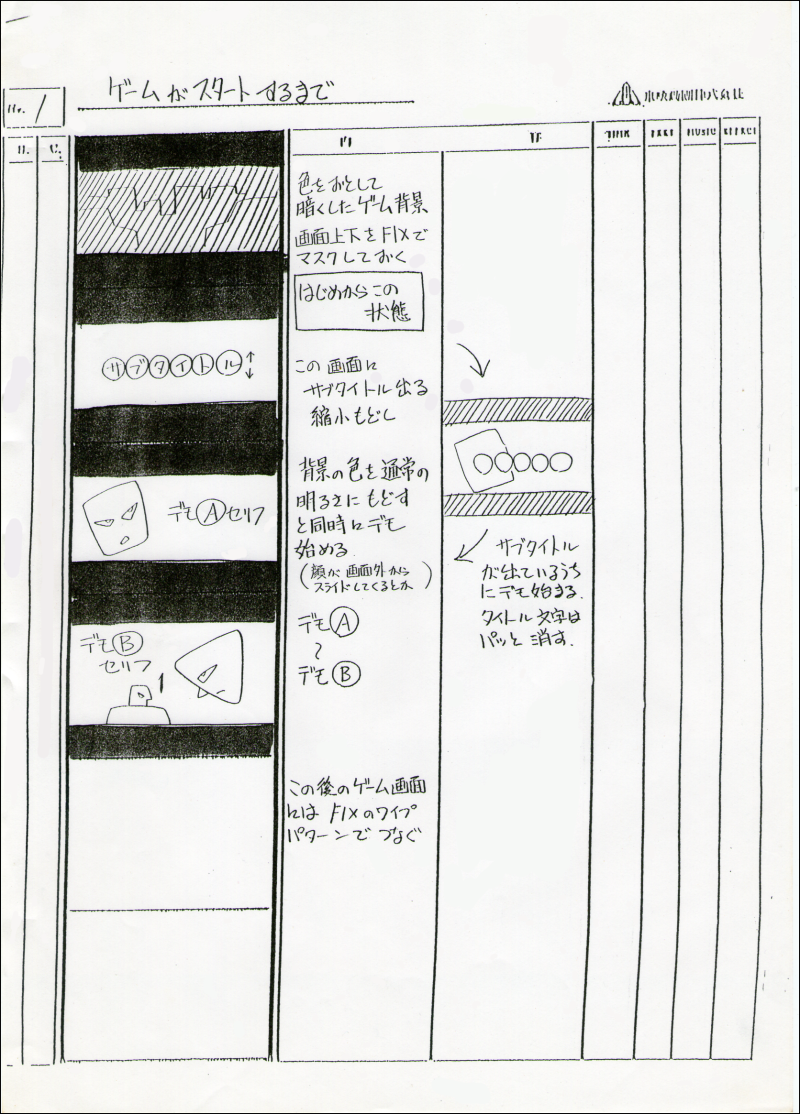 ゲームがスタートするまで
No. 1
TIME
MUSIC
EFFECT
色をおとして
暗くしたゲーム背景
画面上下をFIXで
マスクしておく
はじめからこの
状態
サブタイトル
この画面に
サブタイトル出る
縮小もどし
デモⒶセリフ
背景の色を通常の
明るさにもどす
と同時にデモ
始める
(顔が画面外から
スライドしてくるとか)
サブタイトル
が出ているうち
にデモ始まる.
タイトル文字は
パッと消す.
デモⒷ
セリフ
デモⒶ
〜
デモⒷ
この後のゲーム画面
には FIXのワイプ
パターンでつなぐ